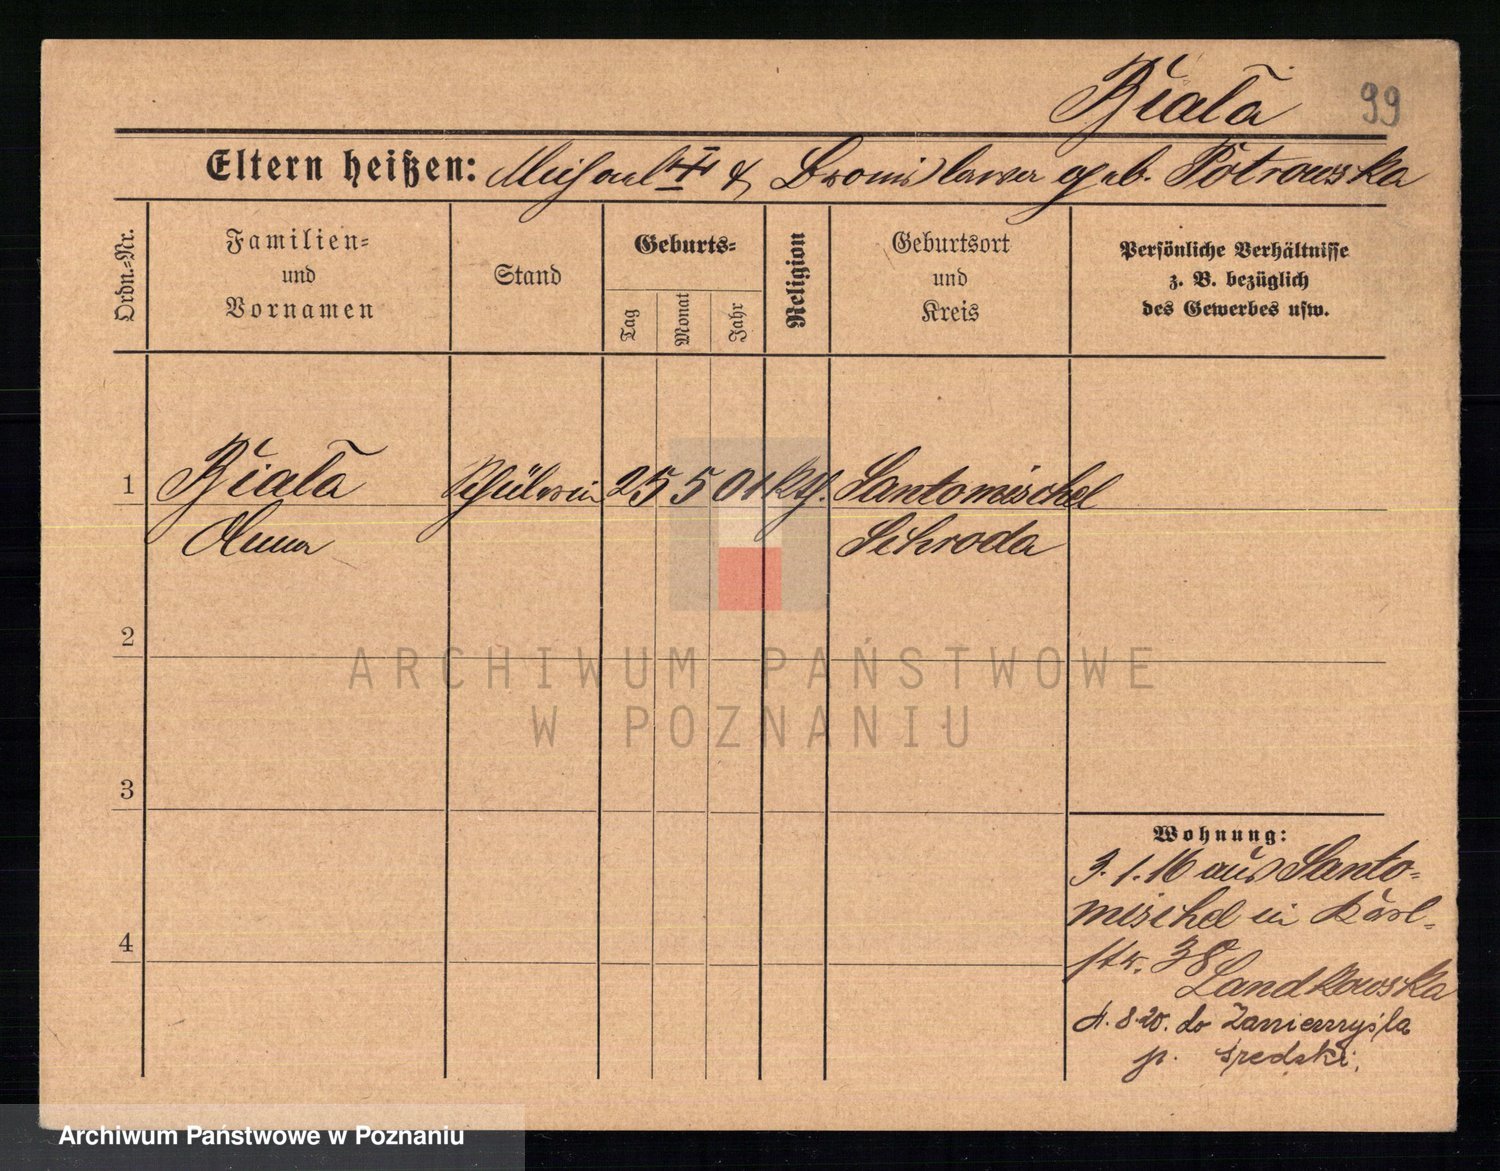 Biała 99
Eltern heißen: Michael & Bronislawa geb. Piotrowska
Ordn.=Nr.
Familien=
und
Vornamen
Stand
Geburts=
Tag
Monat
Jahr
Religion
Geburtsort
und
Kreis
Persönliche Verhältnisse
z. B. bezüglich
des Gewerbes usw.
1 Biała Schülerin 25 5 01 kth. Santomischel
Anna Schroda
2
ARCHIWUM PAŃSTWOWE
W POZNANIU
3
Wohnung:
3.1.16 aus Santo=
mischel in Karl=
4
str. 38
Landkowska
8.20. do Zaniemyśla
p. średzki.
Archiwum Państwowe w Poznaniu